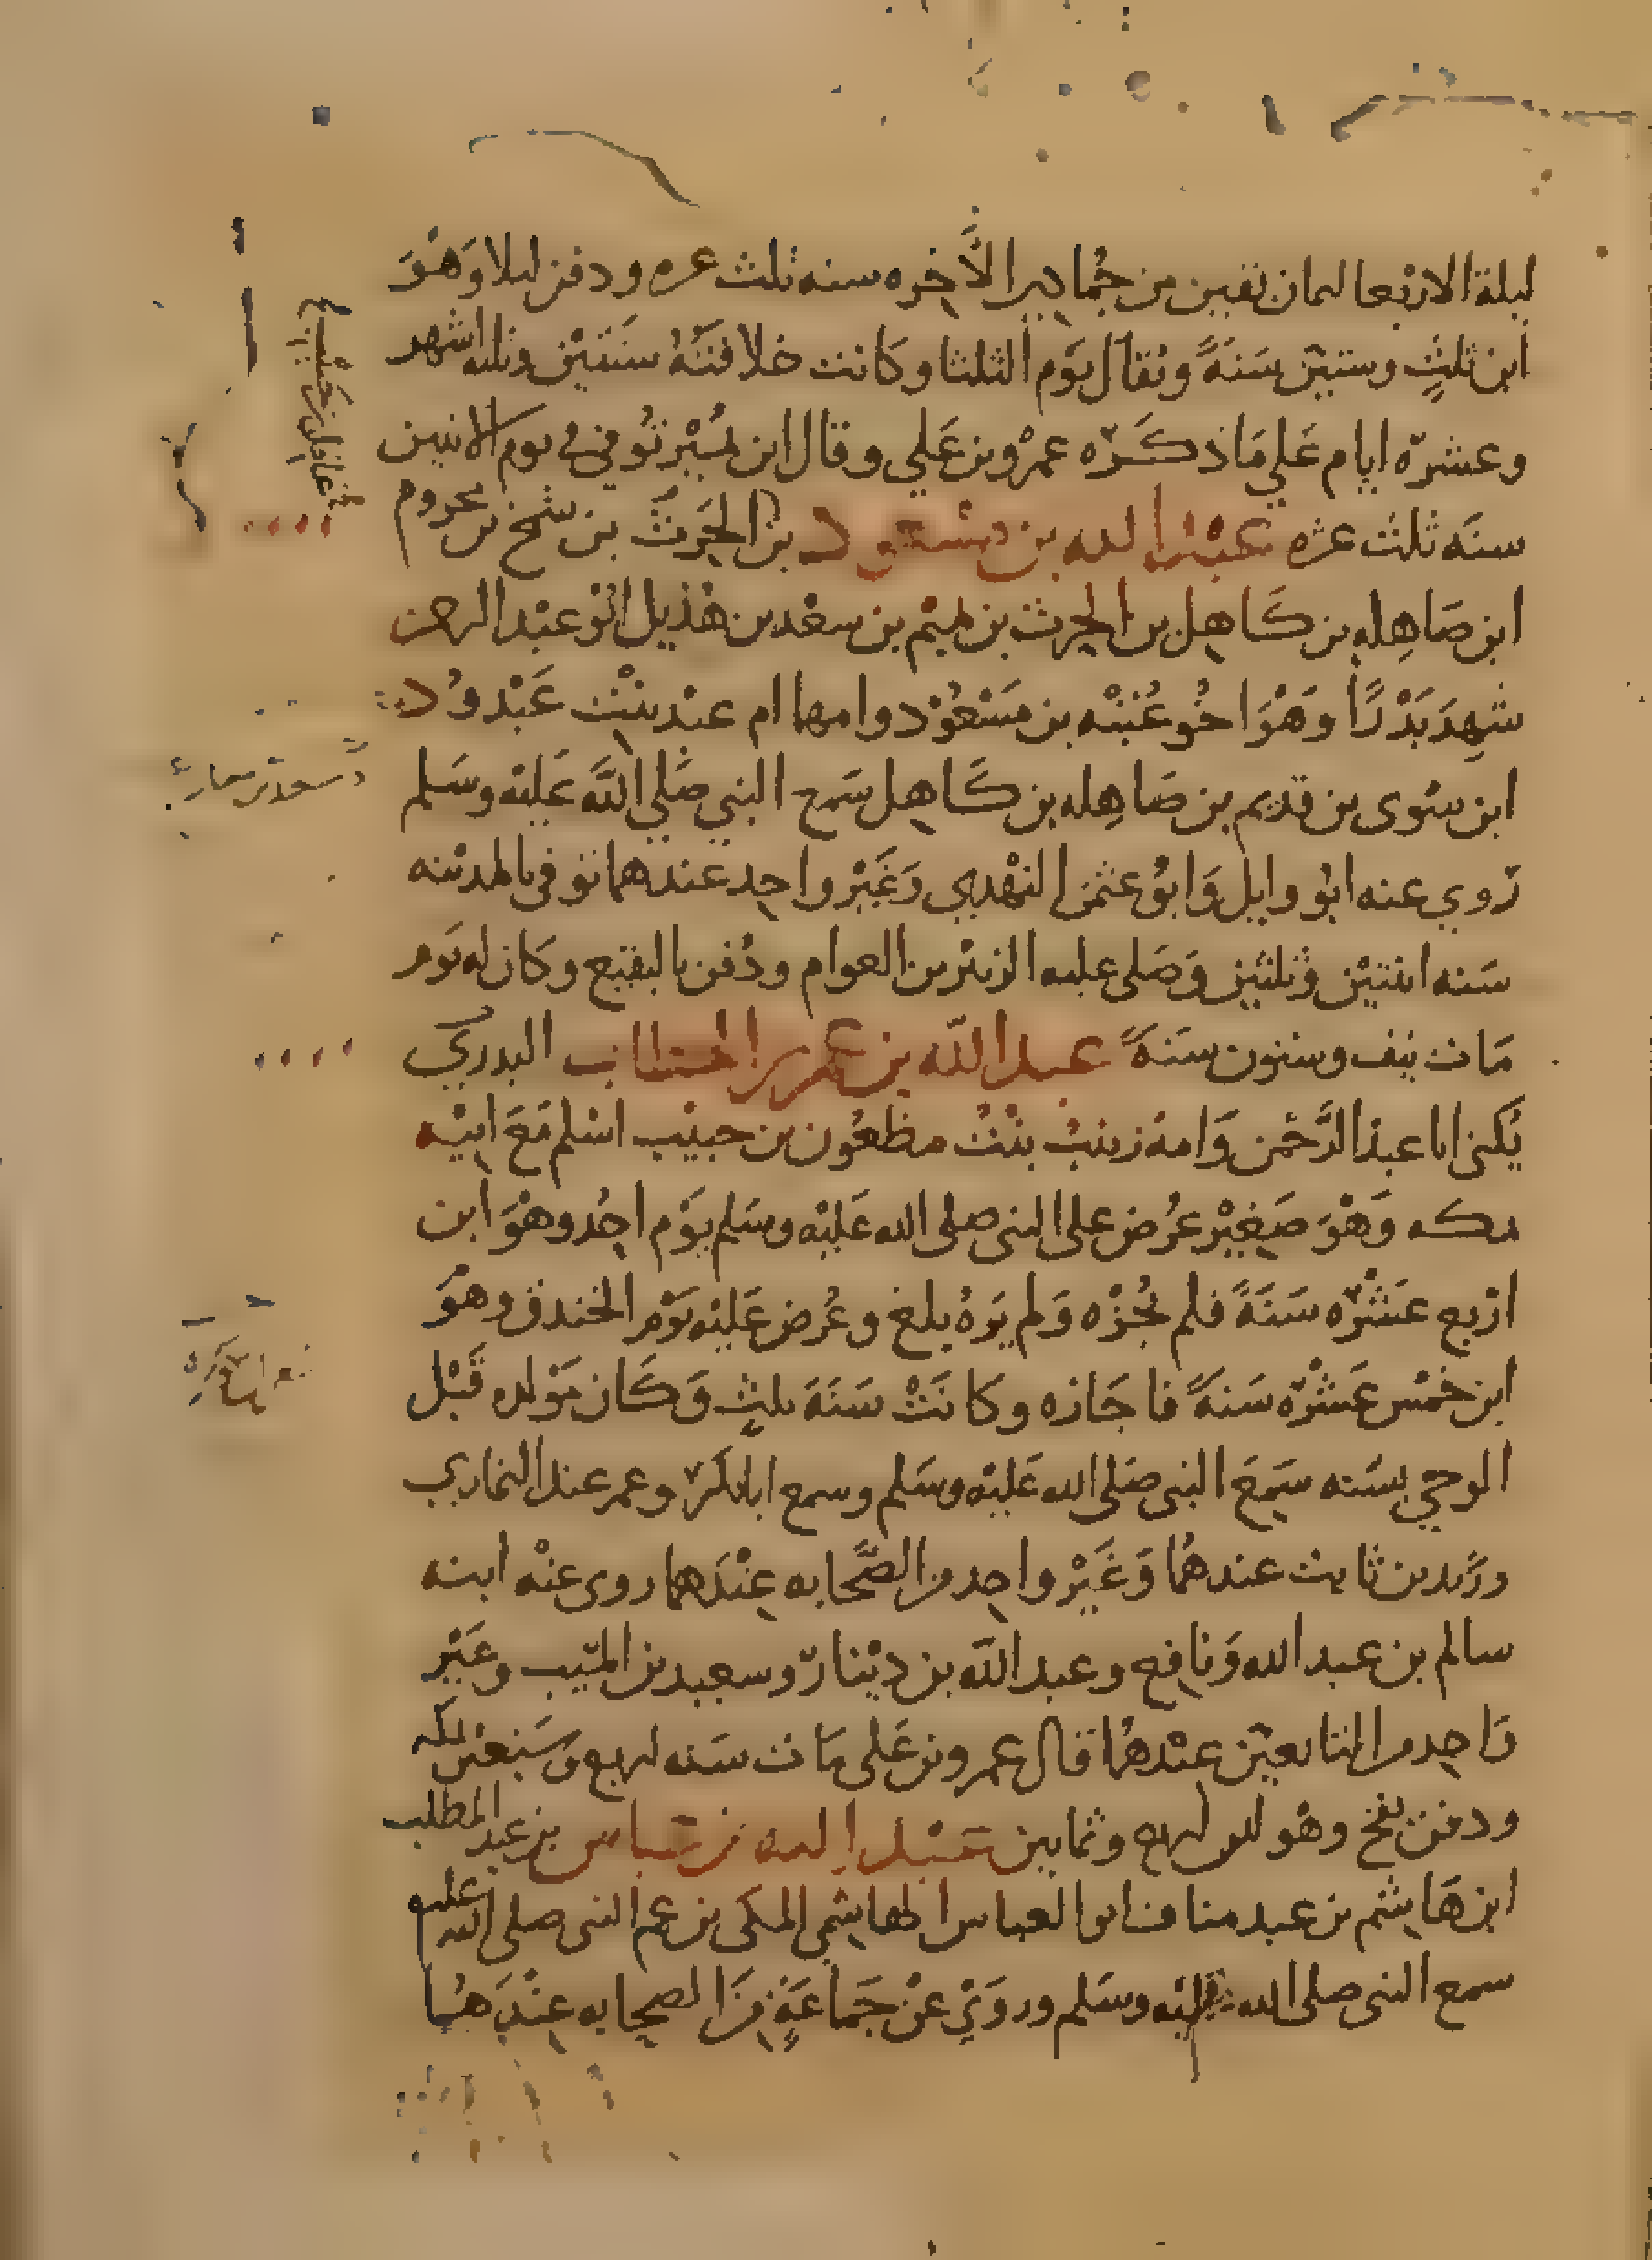 ليلة الاربعا لثمان بقين من جُمادي الاَخره سنه ثلث عره ودفن ليلا وَهْوَ
ابن ثلثٍ وستين سَنَةً ويُقال يوَم الثلثا وكَانت خلافَتُهُ سنَتَيْن وثلثه اشهر
وعشرَه ايام عَلي مَا ذكَرَه عمْرُو بن عَلي وقال ابن نُمَيْر تُوفي في يوم الاثنين
سنَه ثلث عره عَبْد الله بن مسْعود بن الحَرث بن شمخ بن مخروم
ابن صَاهِله بن كَاهِل بن الحرث بن تميْم بن سعْد بن هُذيل ابُو عبْد الرحمن
شهِدَ بَدْرًا وَهْوَ اخُو عُتبْه بن مَسْعُوْد وامهما ام عبْد بنْت عَبْد وُد
ابن سَوى بن قديم بن صَاهِله بن كَاهل سَمع النبي صَلي اللَّه عَليْه وسَلم
رَوي عنه ابُو وايل وَابوُ عثمن النهْدي وَغَيْر واحِد عندهما توفي بالمدينه
سَنه اثنتيْن وثلثين وَصَلى عليه الزبيْر بن العوام ودُفن بالبقيْع وكَان له يَوم
مَات نيف وستون سَنهً عبد اللَّه بن عمر بن الخطاب البدري
يُكنى ابا عبد الرَّحْمن وَامهُ زينبُ بنْتُ مظعُون بن حبيْب اسْلم مَعَ ابيْه
بمكه وَهْوَ صَغيْر عُرض على النبى صلى الله عَليْه وسَلم يوَم احُد وهْوَ ابن
ارْبع عَشْرَه سَنَةً فلم يُجزْه وَلم يَرهُ بلغ وعُرض عَليْه يوَم الخندق وهْوَ
ابن خمْس عَشْرَه سَنةً فاجَازه وكانَتْ سَنَةَ ثلثٍ وَكَان مَوْلده قَبْل
الوحي بسَنه سَمعَ النبى صَلى الله عَليْه وسَلم وسمع ابابكر وعمر عند البخاري
وزَيد بن ثابت عندهُما وَغَيْر واحِد من الصَّحابه عِنْدَهما روى عنْه ابنه
سالم بن عبد الله وَنافع وعبد اللَّه بن ديْنار وسعيد بن المسَيب وغَيْر
وَاحِد من التابعيْن عِنْدهُما قال عمرو بن عَلى مَات سَنه اربع وَسَبْعيْن بمكه
ودفن بفخ وهْو ابن اربع وثمانين عَبْد الله بن عباس بن عبد المطلب
ابن هَاشِم بن عبد مناف ابو العباس الهاشمي المكى بن عم النبى صلى الله عليه
سمع النبى صلى الله عليْه وسَلم وروَيْ عنْ جَمَاعَةٍ مِنَ الصحابه عِنْدَهُما